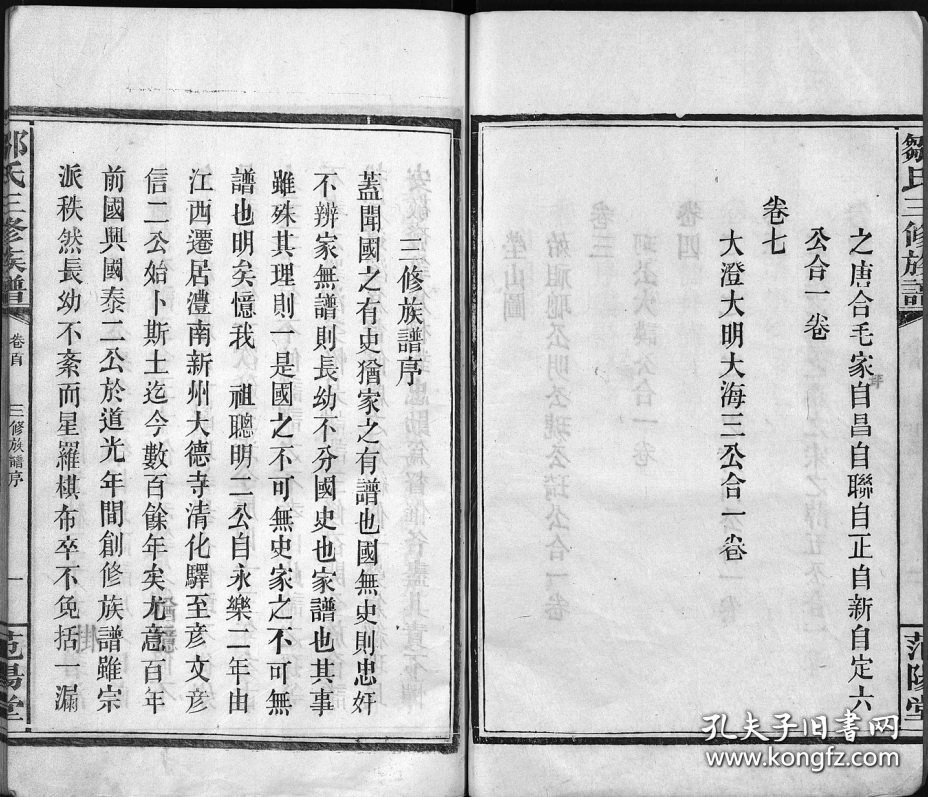 鄒氏三修族譜
范陽堂
之唐合毛家自昌自聯自正自新自定六
公合一卷
卷七
大澄大明大海三公合一卷
三修族譜序
蓋聞國之有史猶家之有譜也國無史則忠奸
不辨家無譜則長幼不分國史也家譜也其事
雖殊其理則一是國之不可無史家之不可無
譜也明矣憶我 祖聰明二公自永樂二年由
江西遷居澧南新州大德寺清化驛至彥文彥
信二公始卜斯土迄今數百餘年矣尤意百年
前國興國泰二公於道光年間創修族譜雖宗
派秩然長幼不紊而星羅棋布卒不免括一漏
鄒氏三修族譜 卷首 三修族譜序 一 范陽堂
孔夫子旧书网
www.kongfz.com